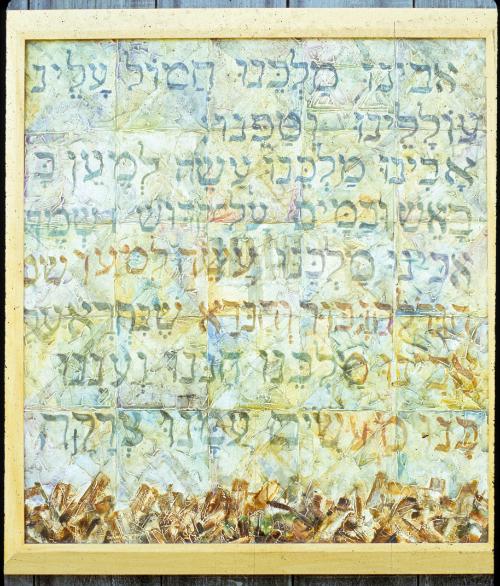 אָבִינוּ מַלְכֵּנוּ חֲמוֹל עָלֵינ
עוֹלָלֵינוּ וְטַפֵּנוּ
אָבִינוּ מַלְכֵּנוּ עֲשֵׂה לְמַעַן בָּ
בָאֵשׁ וּבַמַּיִם עַל
אָבִינוּ מַלְכֵּנוּ עֲשֵׂה לְמַעַן
הַגִּבּוֹר וְהַנּרָא שֶׁנִּקְרָא
אָבִינוּ מַלְכֵּנוּ חָנֵּנוּ וַעֲנֵנוּ
בָּנוּ מַעֲשִׂים עִמָּנוּ צְדָקָה